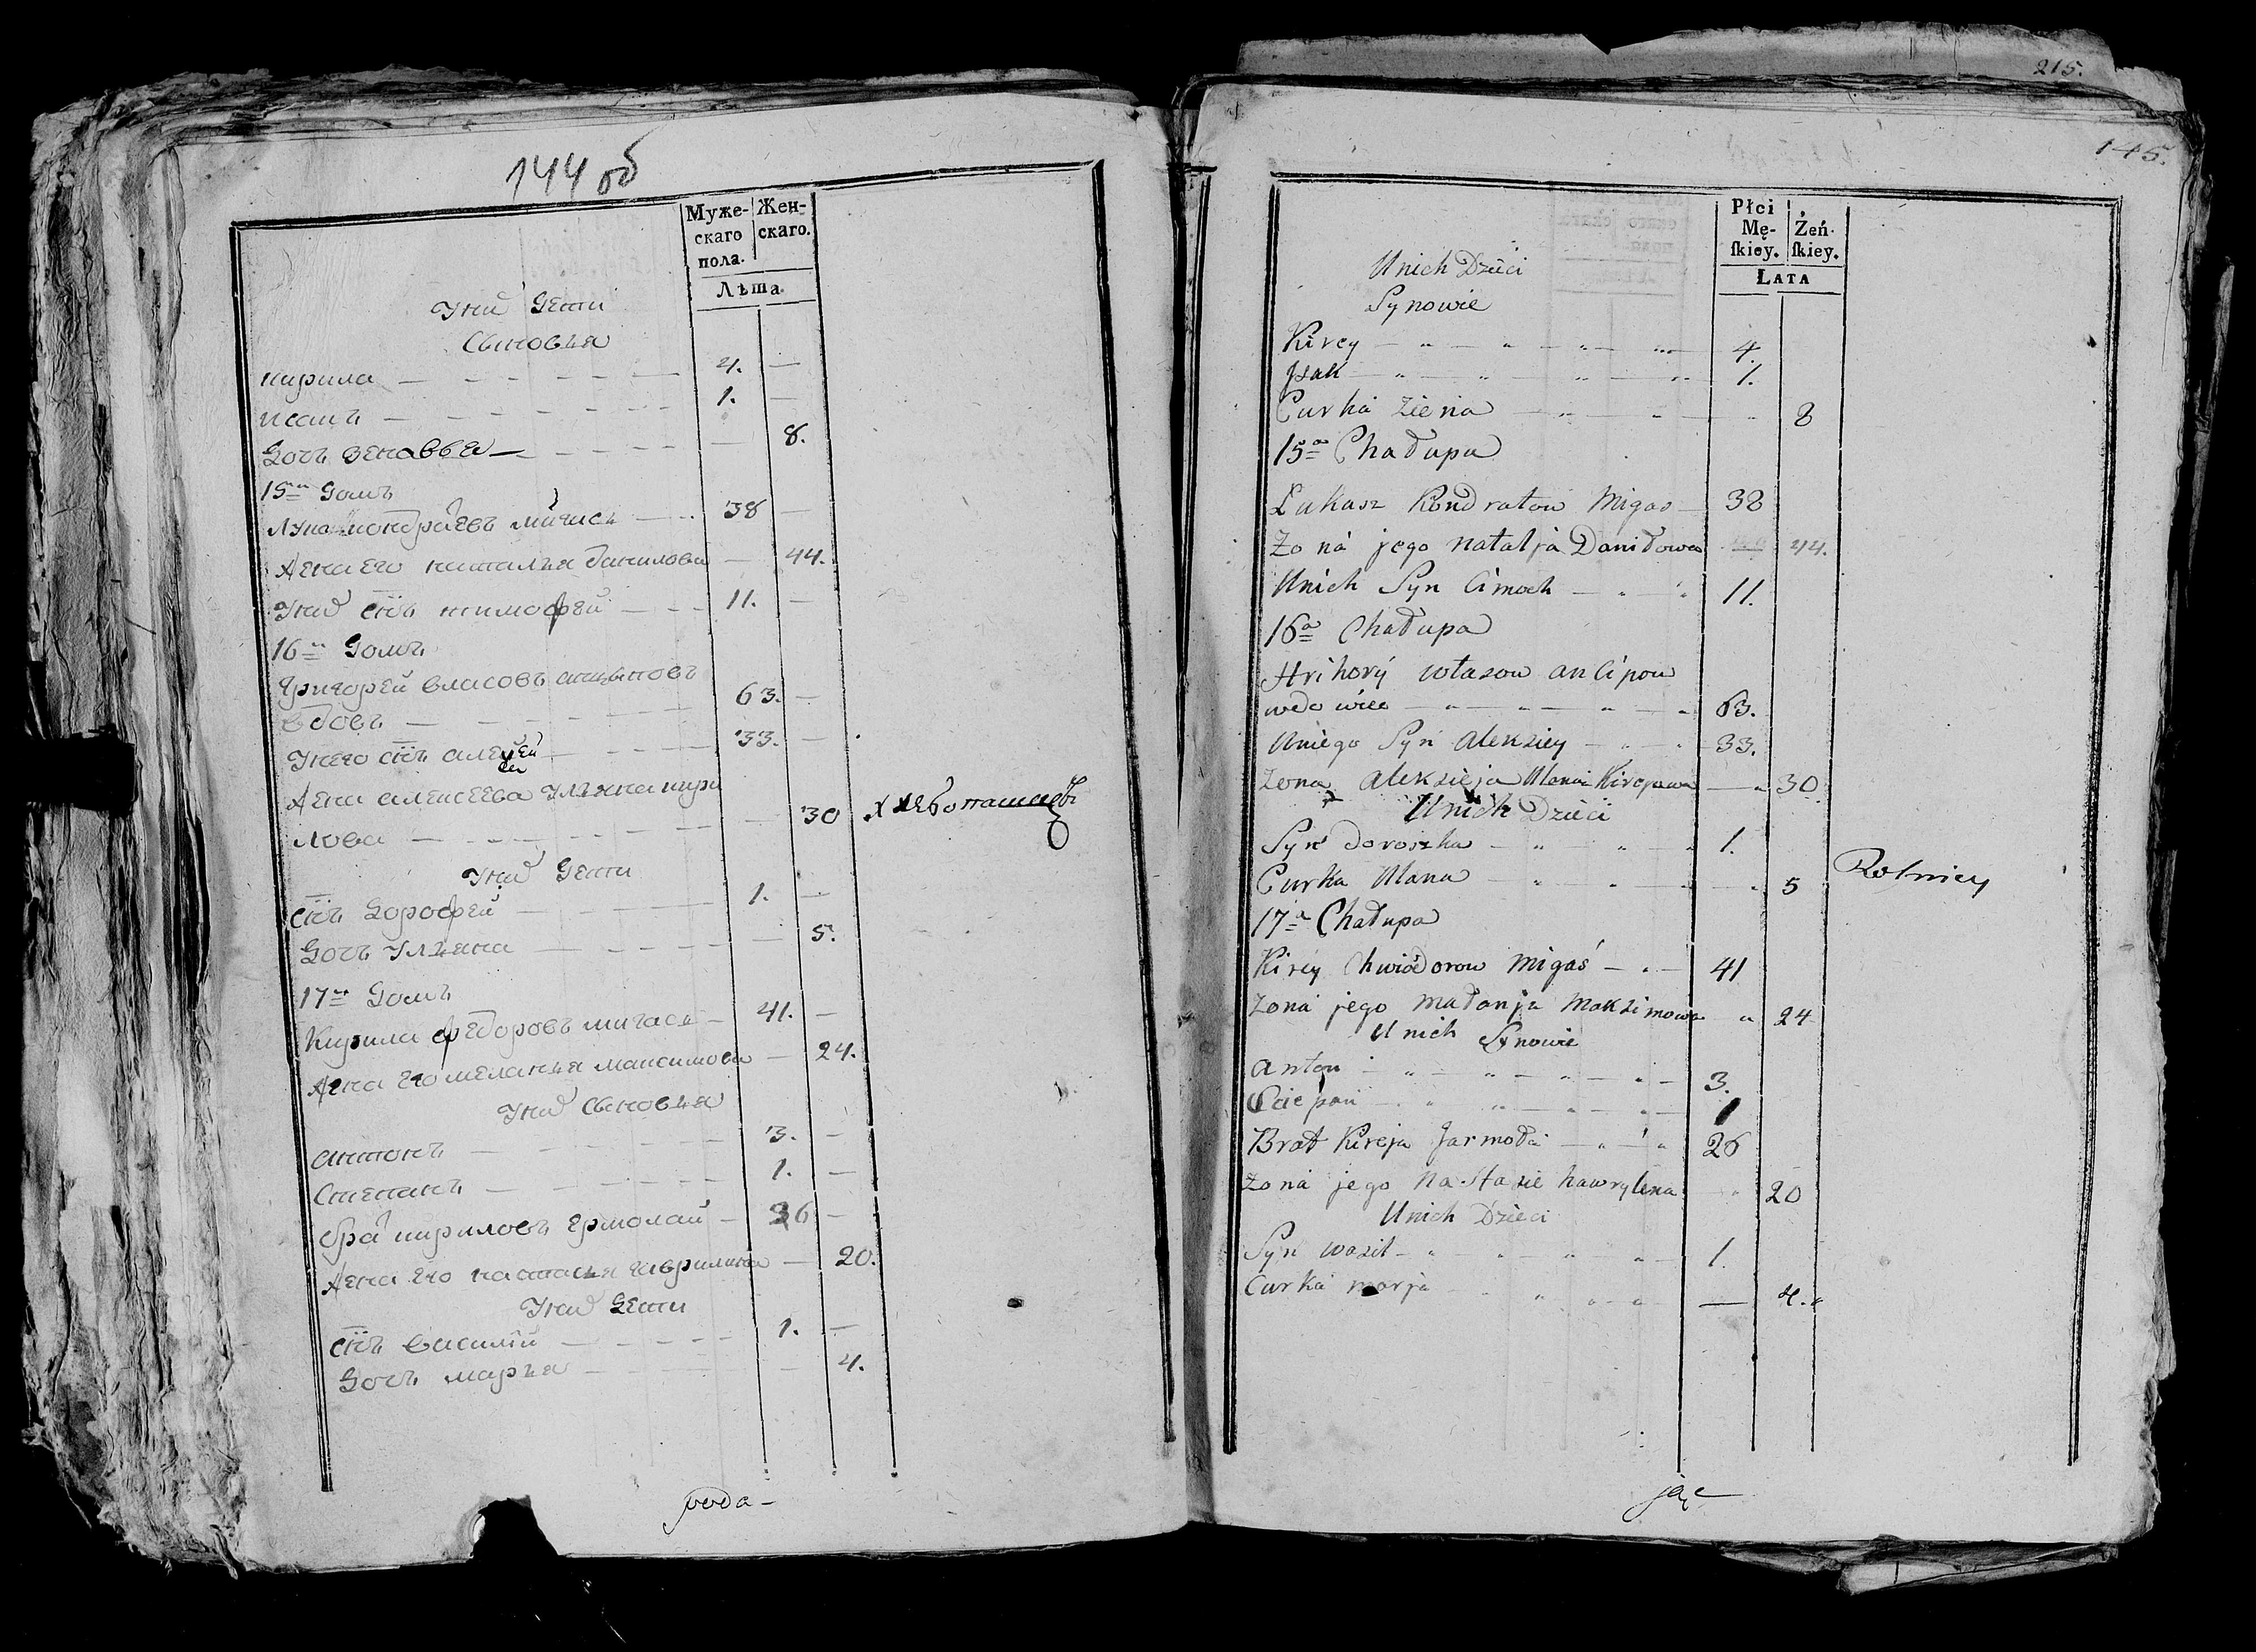 144 об
Муже-
скаго
пола.
Жен-
скаго.
Лѣта
Унихъ Дети
Сыновья
кирила — — — — — 4. —
исакъ — — — — — 1. —
Дочь зеновья — — — — — 8.
15й Домъ
Лука кондратьевъ мигась — 38 —
Жена его наталья данилова — 44.
Унихъ сынъ тимофей — — 11. —
16й Домъ
Григорей власовъ анцыповъ
вдовъ — — — — — 63. —
Унего сынъ алексей — — — 33. —
Жена алексеева Ульяна кири
лова — — — — — 30 хлебопашцы
Унихъ Дети
сынъ Дорофей — — — — 1. —
Дочь Ульяна — — — — — 5.
17й Домъ
Кирила федоровъ мигась — 41. —
Жена его меланья максимова — 24.
Унихъ Сыновья
антонъ — — — — — 3. —
Степанъ — — — — — 1. —
братъ кириловъ ермолай — 26 —
Жена его настасья гаврилина — 20.
Унихъ Дети
сынъ василій — — — — 1. —
Дочь марья — — — — — 4.
poda-
215.
145.
Płci
Mę-
ſkiey.
Żeń-
ſkiey.
LATA
Unich Dzieci
Synowie
Kirey — „ — „ — „ — 4.
Jsak — „ — „ — „ — 1.
Curka Zienia — „ — „ — „ 8
15a Chałupa
Łukasz Kondratow Migas — 38
Żona jego natalja Daniłowa 44.
Unich Syn Cimoch — „ — „ 11.
16a Chałupa
Hrihory włazow ancipow
wdowiec — „ — „ — „ — „ 63.
Uniego Syn alexiey — „ — 33.
Zona alexieja Ulana Kireiowa — „ 30
Unich Dzieci
Syn doroszka — „ — „ — „ 1.
Curka Ulana — „ — „ — „ 5 Rolnicy
17a Chałupa
Kirey Chwiodorow migaś — „ — 41
Zona jego małanja maksimowa „ 24
Unich Synowie
anton — „ — „ — „ — „ — 3.
Sciepan — „ — „ — „ — „ — 1
Brat Kireja Jarmoła — „ — „ 26
Zona jego Nastazie hawrylina „ 20
Unich Dzieci
Syn wasil — „ — „ — „ — „ — 1.
Curka marja — „ — „ — „ — 4.„
jąc